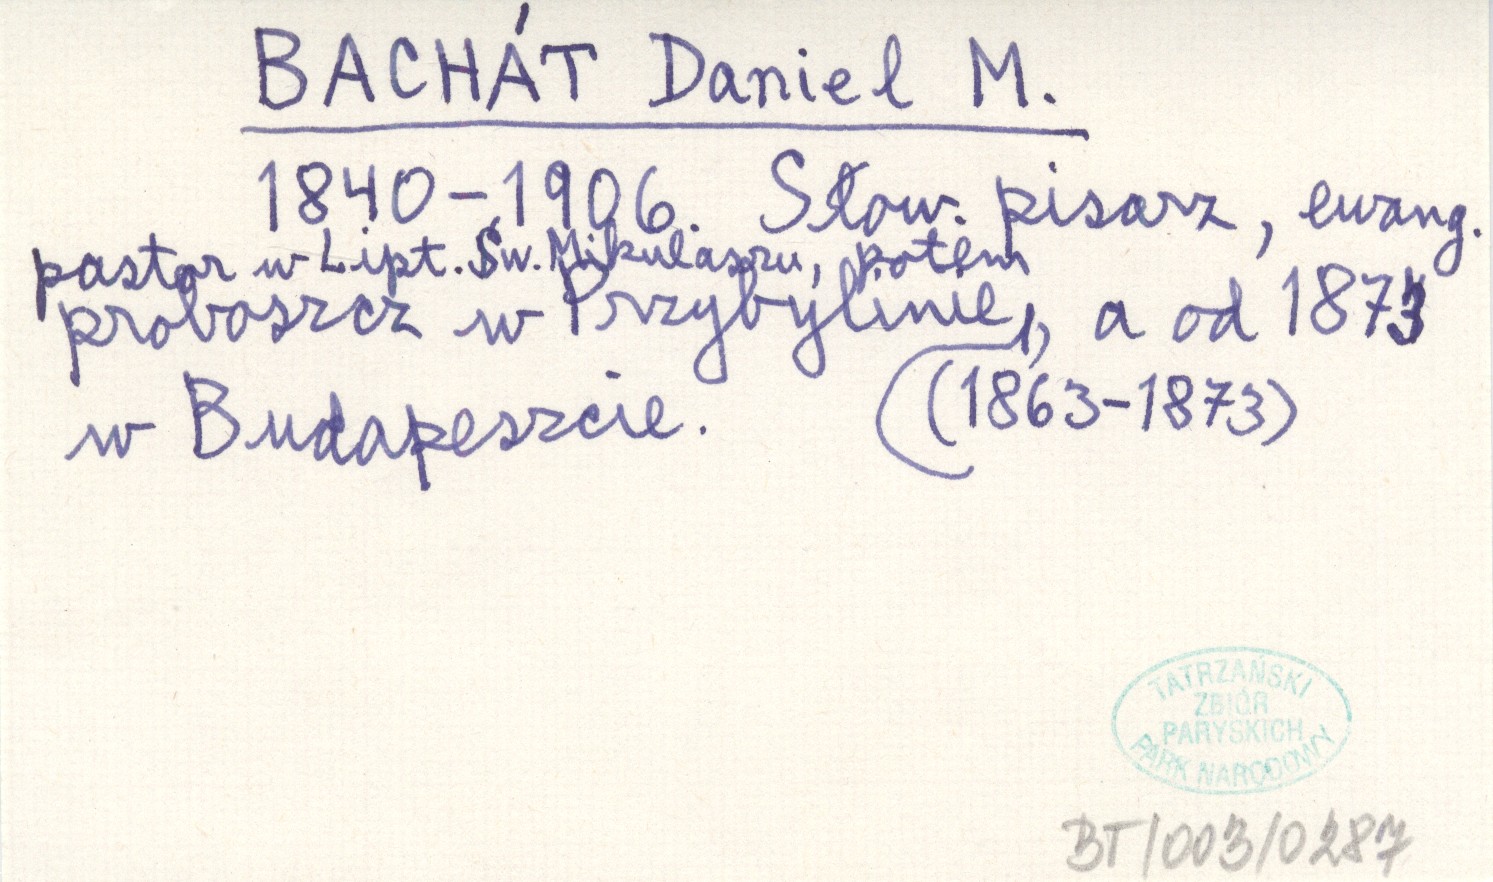 BACHÁT Daniel M.
1840-1906. Słow. pisarz, ewang.
pastor w Lipt. Św. Mikulaszu, potem
proboszcz w Przybylinie, a od 1873
w Budapeszcie. (1863-1873)
TATRZAŃSKI
ZBIÓR
PARYSKICH
PARK NARODOWY
BT/003/0287